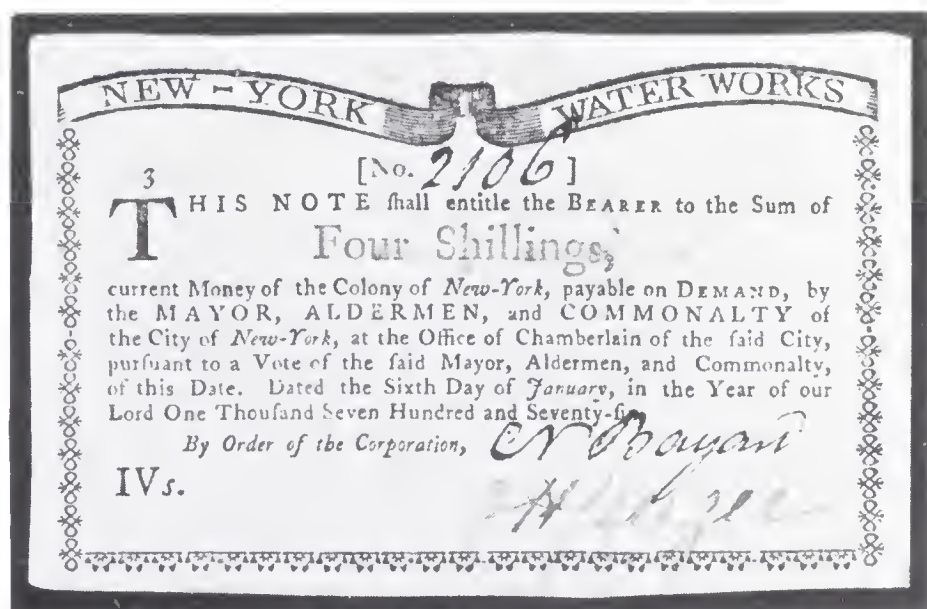 NEW-YORK WATER WORKS
[No. 2106]
3
THIS NOTE ſhall entitle the BEARER to the Sum of
Four Shillings,
current Money of the Colony of New-York, payable on DEMAND, by
the MAYOR, ALDERMEN, and COMMONALTY of
the City of New-York, at the Office of Chamberlain of the ſaid City,
purſuant to a Vote of the ſaid Mayor, Aldermen, and Commonalty,
of this Date. Dated the Sixth Day of January, in the Year of our
Lord One Thouſand Seven Hundred and
By Order of the Corporation, N Bayard
IVs.